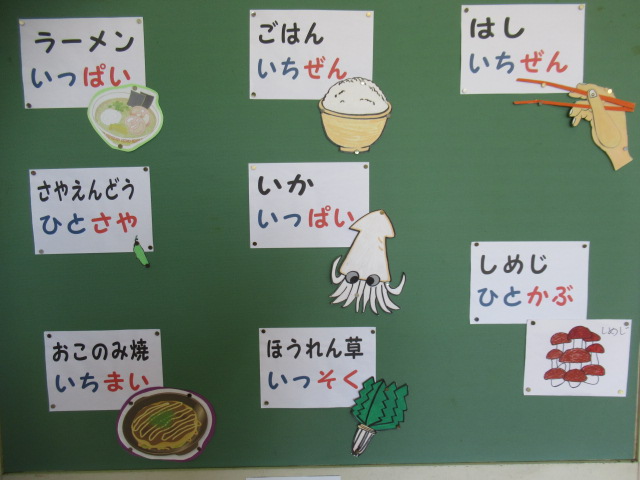 ラーメン
いっぱい
ごはん
いちぜん
はし
いちぜん
さやえんどう
ひとさや
いか
いっぱい
しめじ
ひとかぶ
しめじ
おこのみ焼
いちまい
ほうれん草
いっそく